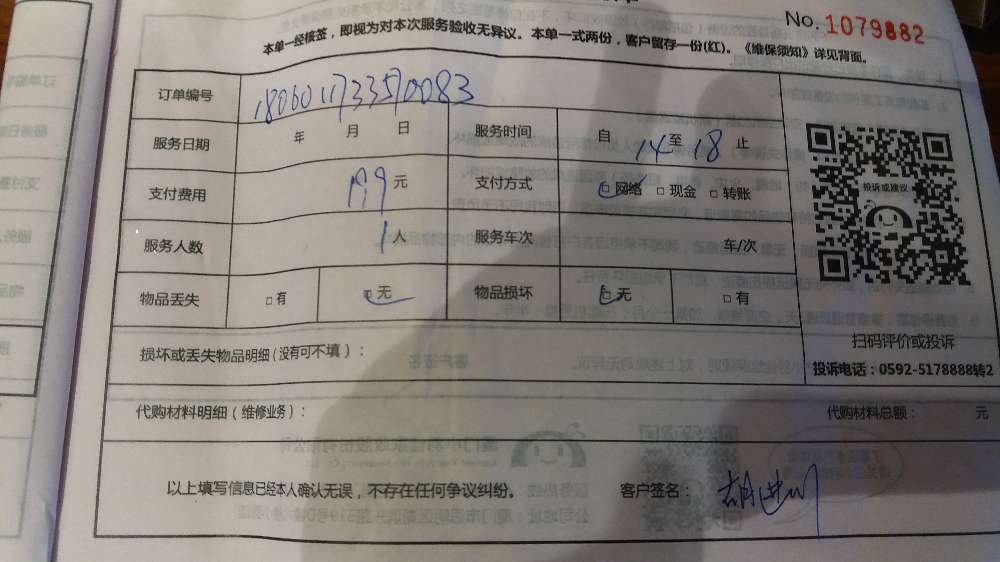 No. 1079882
本单一经核签，即视为对本次服务验收无异议。本单一式两份，客户留存一份(红)。《维保须知》详见背面。
订单编号 1806011733570083
服务日期 年 月 日 服务时间 自 14 至 18 止
支付费用 元 支付方式 □网络 □现金 □转账
服务人数 1 人 服务车次 车/次
物品丢失 □有 □无 物品损坏 □无 □有
投诉或建议
扫码评价或投诉
投诉电话：0592-5178888转2
损坏或丢失物品明细（没有可不填）：
代购材料明细（维修业务）： 代购材料总额： 元
以上填写信息已经本人确认无误，不存在任何争议纠纷。 客户签名：